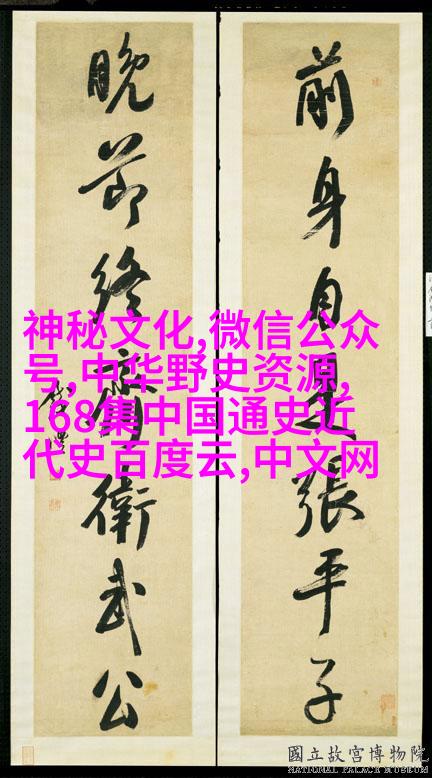 前身自是張平子
晚節終衛武公
神秘文化,微信公众
号,中华野史资源,
168集中国通史近
代史百度云,中文网
國立故宮博物院
NATIONAL PALACE MUSEUM